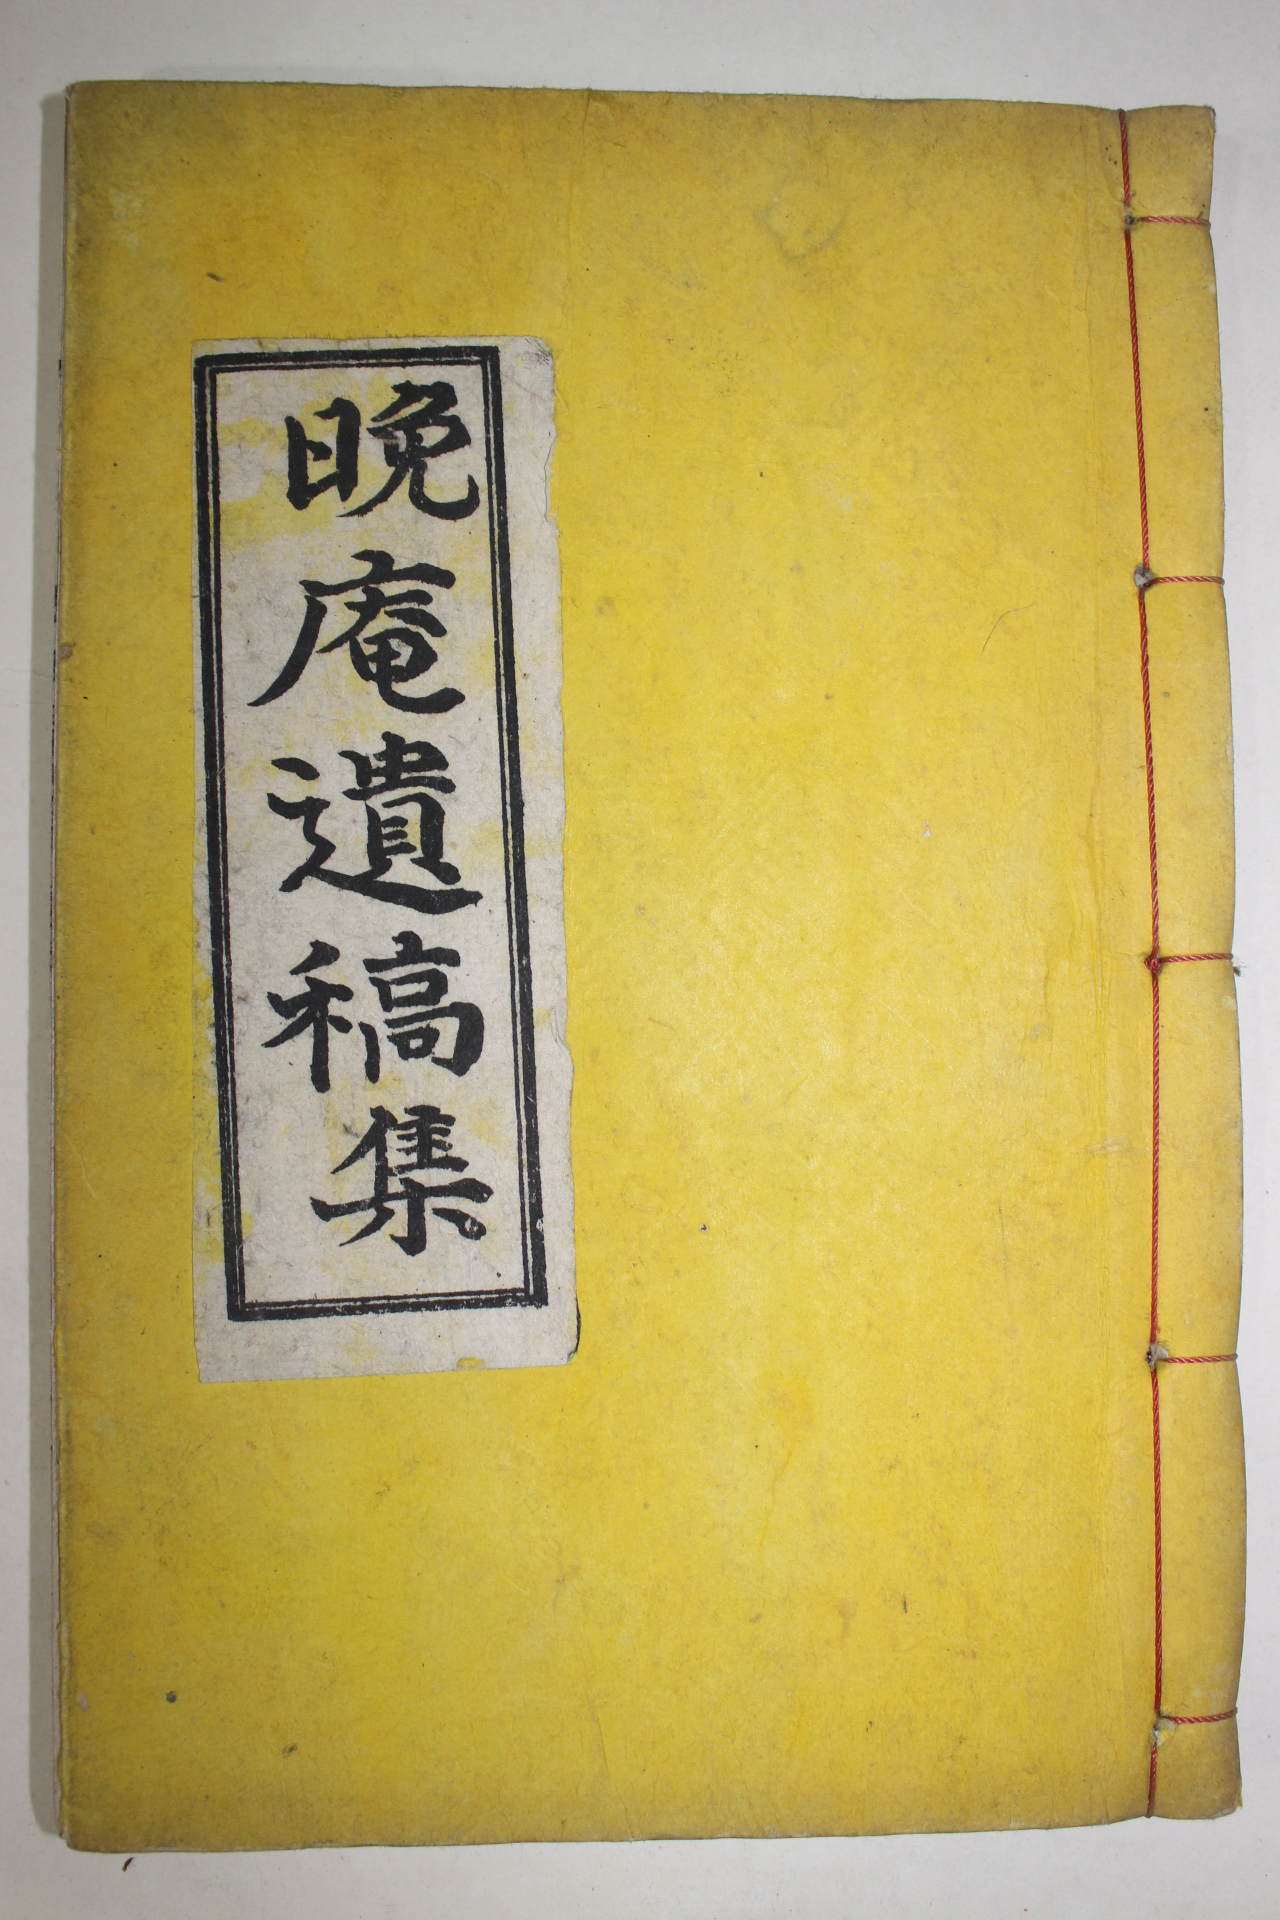 晩庵遺稿集